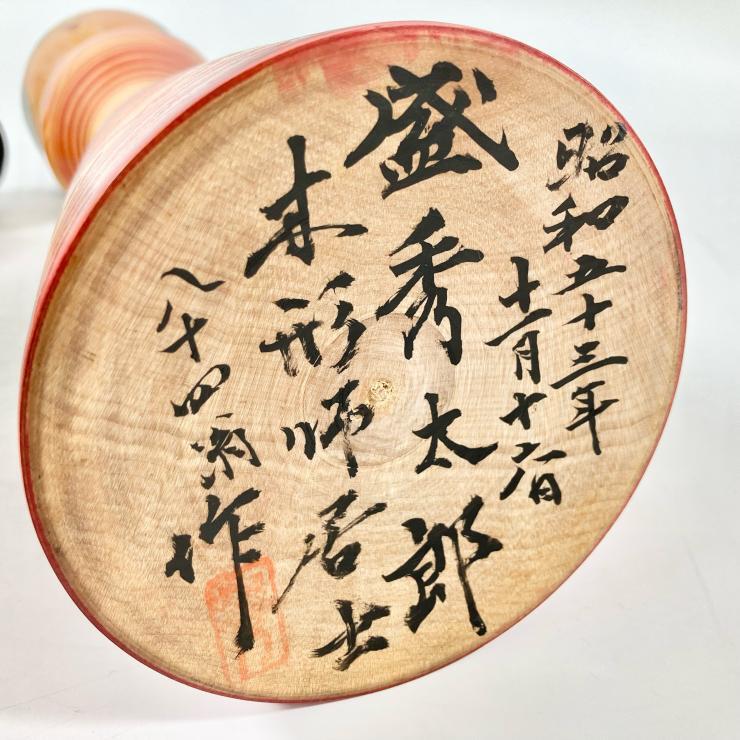 昭和五十三年
十一月十六日
盛秀太郎
木形師居士
八十四翁作